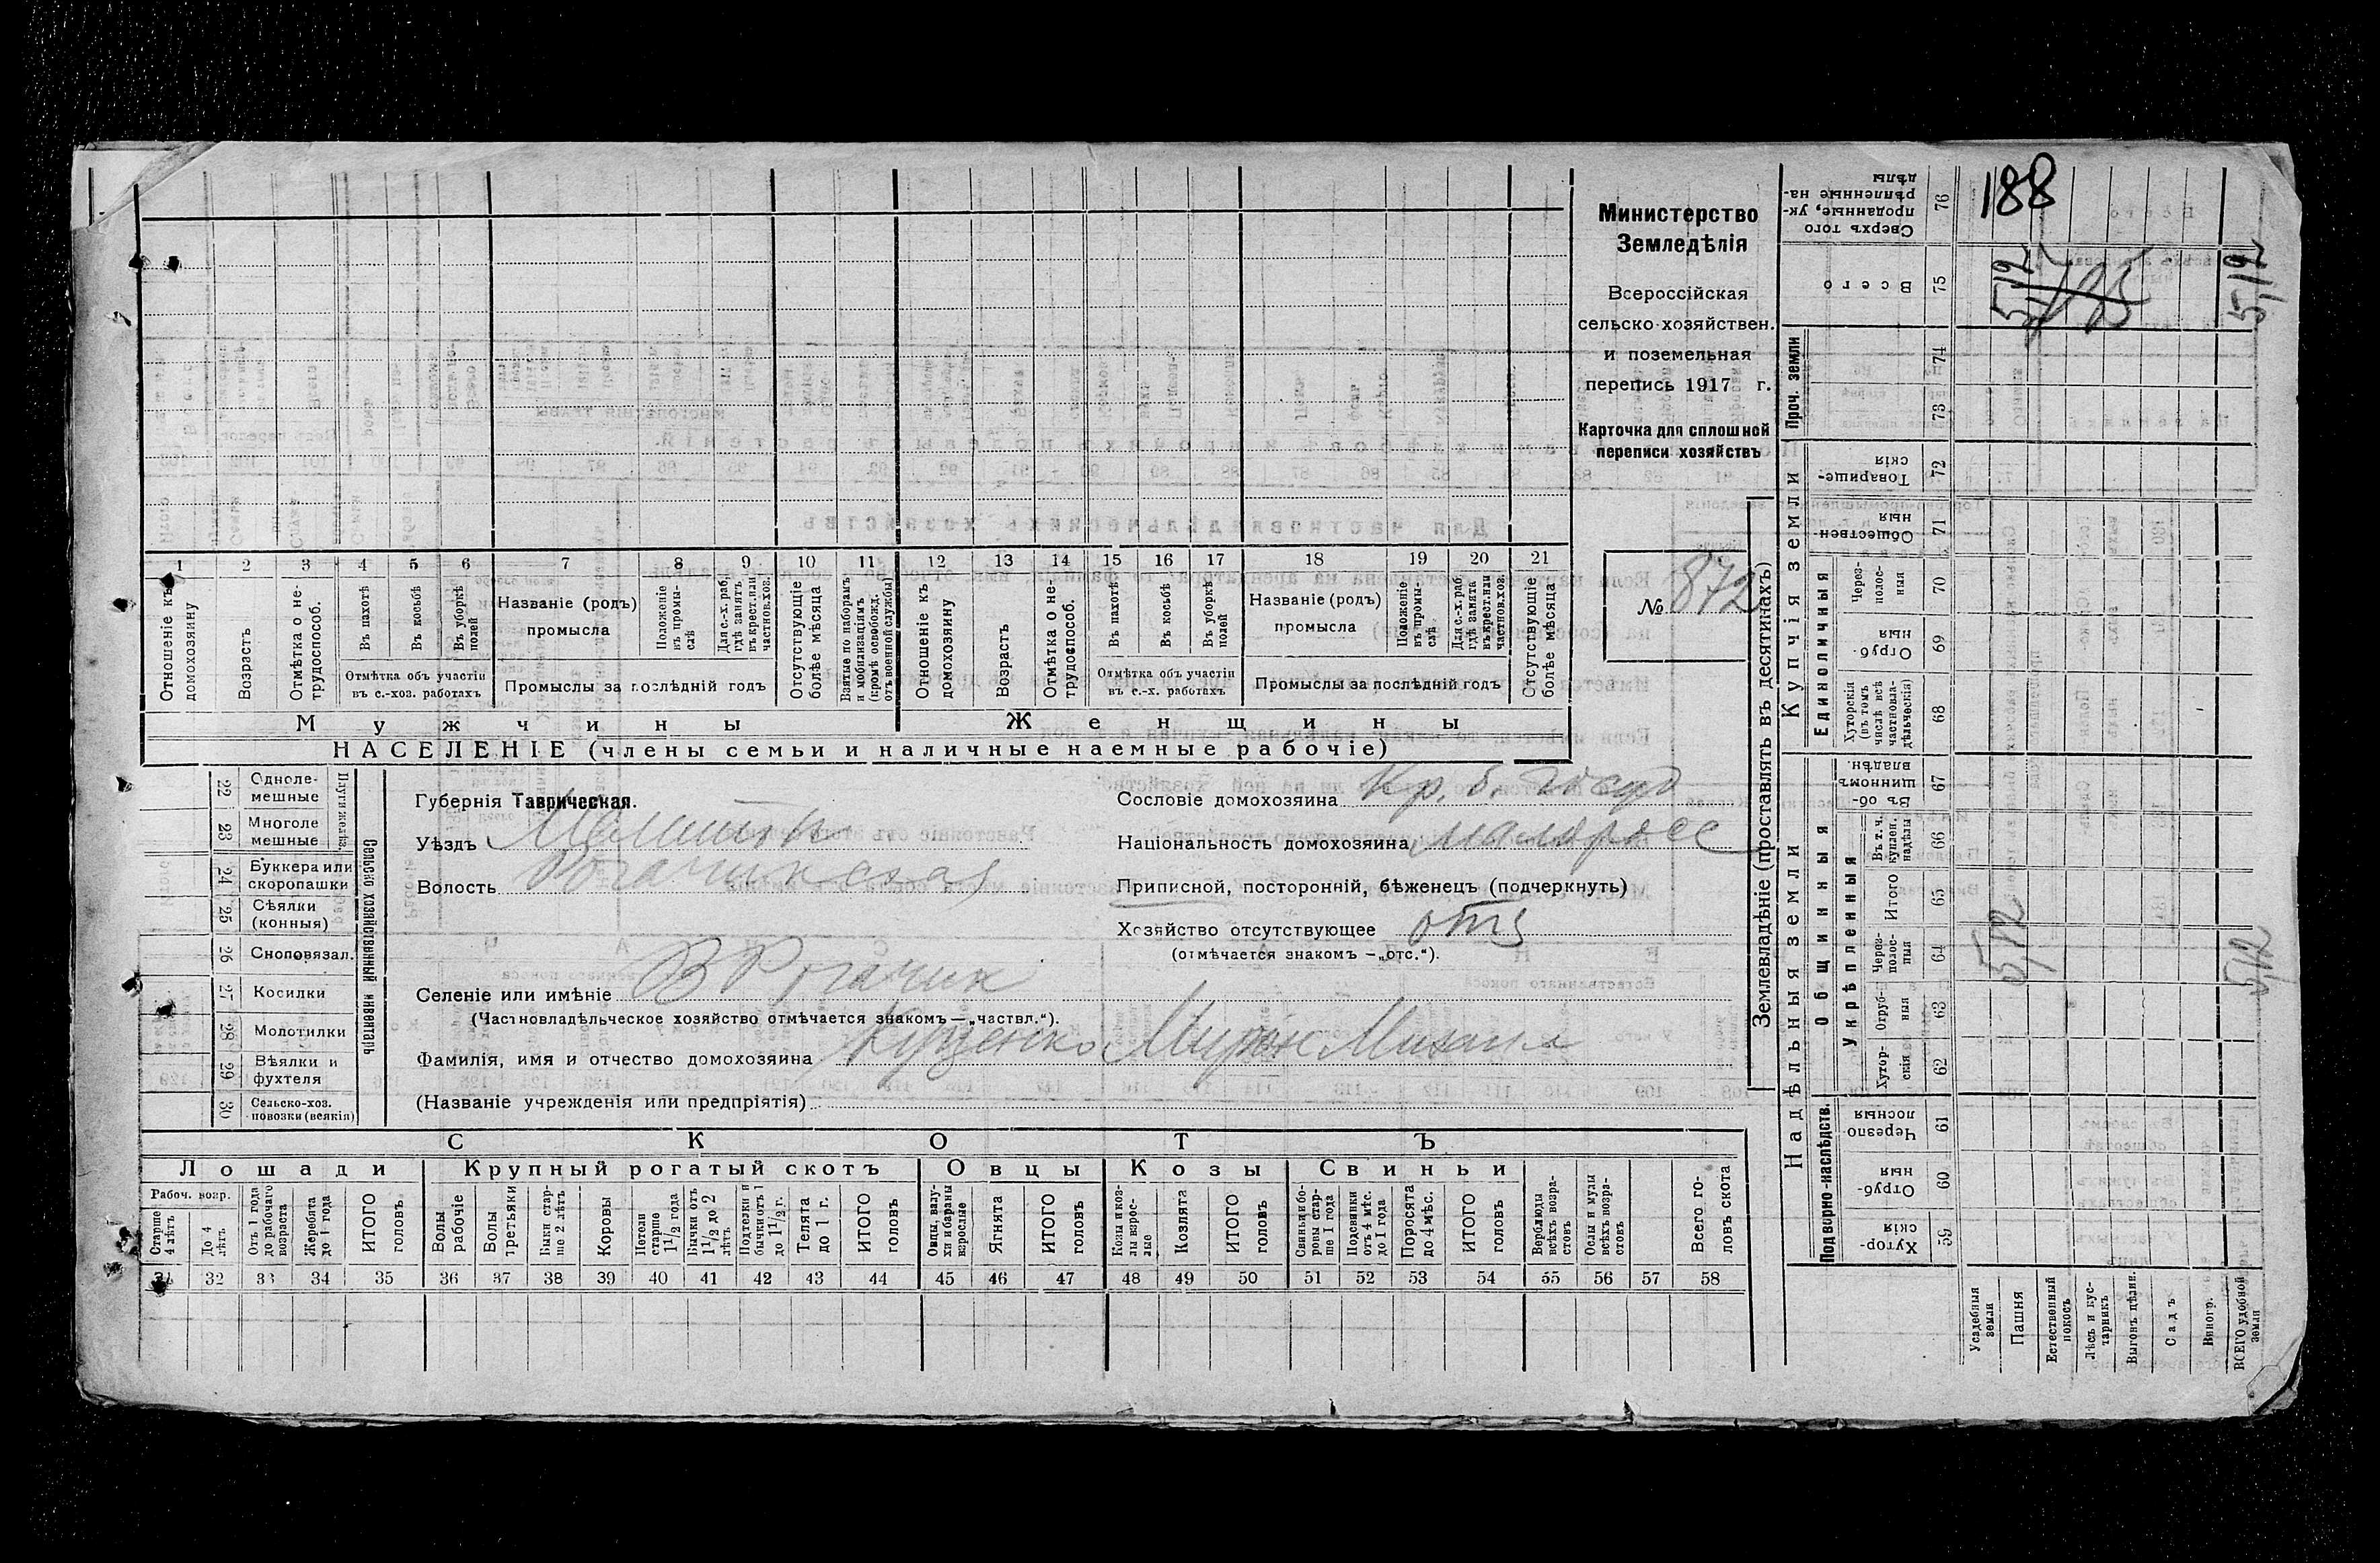 Министерство
Земледѣлія
Всероссійская
сельско-хозяйствен.
и поземельная
перепись 1917 г.
Карточка для сплошной
переписи хозяйствъ
№ 872
1 2 3 4 5 6 7 8 9 10 11 12 13 14 15 16 17 18 19 20 21
Отношеніе къ домохозяину
Возрастъ
Отмѣтка о не-трудоспособ.
Въ пахотѣ
Въ косьбѣ
Въ уборкѣ полей
Отмѣтка объ участіи
въ с.-хоз. работахъ
Названіе (родъ)
промысла
Положеніе въ промы-слѣ
Для с.-х. раб. гдѣ занятъ въ крест. или частнов. хоз.
Промыслы за послѣдній годъ
Отсутствующіе болѣе мѣсяца
Взятые по наборамъ и мобилизаціямъ (кромѣ освобожд. отъ военной службы)
Отношеніе къ домохозяину
Возрастъ
Отмѣтка о не-трудоспособ.
Въ пахотѣ
Въ косьбѣ
Въ уборкѣ полей
Отмѣтка объ участіи
въ с.-х. работахъ
Названіе (родъ)
промысла
Положеніе въ промы-слѣ
Для с.-х. раб. гдѣ занята въ крест. или частнов. хоз.
Промыслы за послѣдній годъ
Отсутствующіе болѣе мѣсяца
Мужчины
Женщины
НАСЕЛЕНІЕ (члены семьи и наличные наемные рабочіе)
22 Одноле-мешные
23 Многоле мешные
Плуги желѣз.
24 Буккера или скоропашки
25 Сѣялки (конныя)
26 Сноповязал.
27 Косилки
28 Молотилки
29 Вѣялки и фухтеля
30 Сельско-хоз. повозки (всякія)
Сельско хозяйственный инвентарь
Губернія Таврическая.
Уѣздъ Мелитоп
Волость Рогачикская
Сословіе домохозяина Кр. б. госуд
Національность домохозяина малоросс
Приписной, посторонній, бѣженецъ (подчеркнуть)
Хозяйство отсутствующее отс
(отмѣчается знакомъ —„отс.“).
Селеніе или имѣніе В Рогачик
(Частновладѣльческое хозяйство отмѣчается знакомъ—„частвл.“).
Фамилія, имя и отчество домохозяина Куценко Мирон Михаил
(Названіе учрежденія или предпріятія)
СКОТЪ
Лошади
Крупный рогатый скотъ
Овцы
Козы
Свиньи
Рабоч. возр.
Старше 4 лѣтъ
До 4 лѣтъ
Отъ 1 года до рабочаго возраста
Жеребята до 1 года
ИТОГО головъ
Волы рабочіе
Волы третьяки
Быки стар-ше 2 лѣтъ
Коровы
Нетели старше 1 1/2 года
Бычки отъ 1 1/2 до 2 лѣтъ
Подтелки и бычки отъ 1 до 1 1/2 г.
Телята до 1 г.
ИТОГО головъ
Овцы, валу-хи и бараны взрослые
Ягнята
ИТОГО головъ
Козы и коз-лы взрос-лые
Козлята
ИТОГО головъ
Свиньи и бо-ровы стар-ше 1 года
Подсвинки отъ 4 мѣс. до 1 года
Поросята до 4 мѣс.
ИТОГО головъ
Верблюды всѣхъ возра-стовъ
Ослы и мулы всѣхъ возра-стовъ
Всего го-ловъ скота
31 32 33 34 35 36 37 38 39 40 41 42 43 44 45 46 47 48 49 50 51 52 53 54 55 56 57 58
Землевладѣніе (проставлять въ десятинахъ)
Надѣльныя земли
Купчія земли
Проч. земли
Подворно-наслѣдств.
Общинныя
Укрѣпленныя
Единоличныя
Хутор-скія 59
Отруб-ныя 60
Черезпо-лосныя 61
Хутор-скія 62
Отруб-ныя 63
Через-полос-ныя 64
Итого 65
Въ т. ч. куплен. надѣлы 66
Въ об-щинномъ владѣн. 67
Хуторскія (въ томъ числѣ всѣ частновла-дѣльческія) 68
Отруб-ныя 69
Через-полос-ныя 70
Обществен-ныя 71
Товарище-скія 72
73
74
Всего 75
Сверхъ того проданные, ук-рѣпленные на-дѣлы 76
Усадебныя земли
Пашня
Естественный покосъ
Лѣсъ и кус-тарникъ
Выгонъ цѣлин.
Садъ
Виногр.
ВСЕГО удобной земли
188
5,12
5,12
5,12
5,12